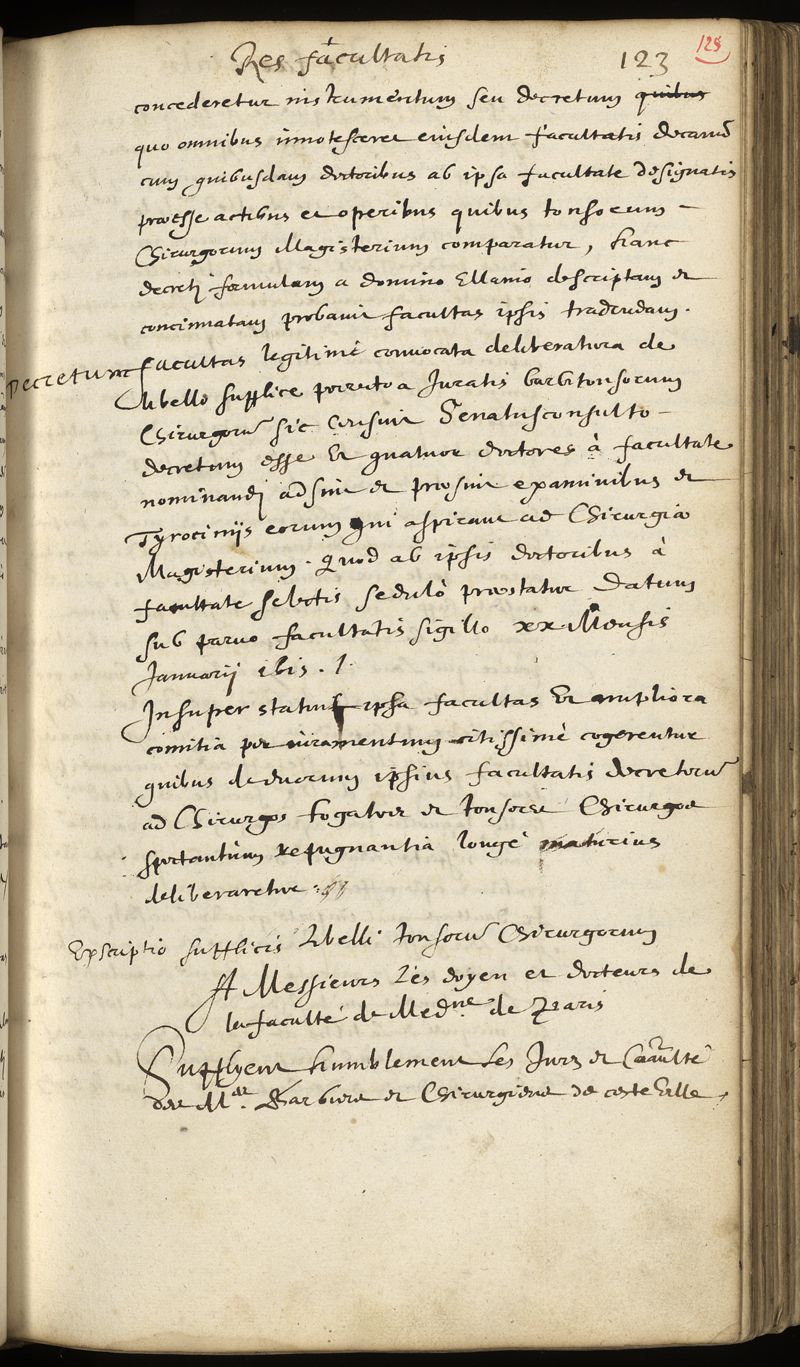 Res facultatis
123
125
concederetur instrumentum seu decretum quibus
quo omnibus innotesceret eiusdem facultatis decanū
cum quibusdam doctoribus ab ipsa facultate designatis
præesse actibus et operibus quibus tonsorum -
Chirurgorum Magisterium comparatur, hanc
decreti formulam a domino Ellanio descriptam et
concinnatam probavit facultas ipsis tradendam.
Decretum facultas legitimè convocata deliberatura de
libello supplice porrecto a Juratis barbitonsorum
Chirurgorū sic censuit Senatusconsulto -
decretum esse ut quatuor doctores à facultate
nominandi adsint et præsint examinibus et
Tyrociniis eorum qui aspirant ad Chirurgiæ
Magisterium. Quod ab ipsis doctoribus à
facultate selectis sedulò præstatur Datum
sub parvo facultatis sigillo xx Mensis
Januarij
Insuper statuit ipsa facultas ut ampliora
comitia per iuramentum citissimè cogerentur
quibus de duorum ipsius facultatis decretorū
ad Chirurgos togatos et tonsores Chirurgos
spectantium repugnantia longè maturius
deliberaretur
Exscriptio supplicis libelli tonsorū Chirurgorum
A Messieurs Les doyen et docteurs de
la faculté de Medne de Paris
Supplyent humblement Les Jurez et Com̃aulté
des Mes. Barbiers et Chirurgiens de ceste Ville,